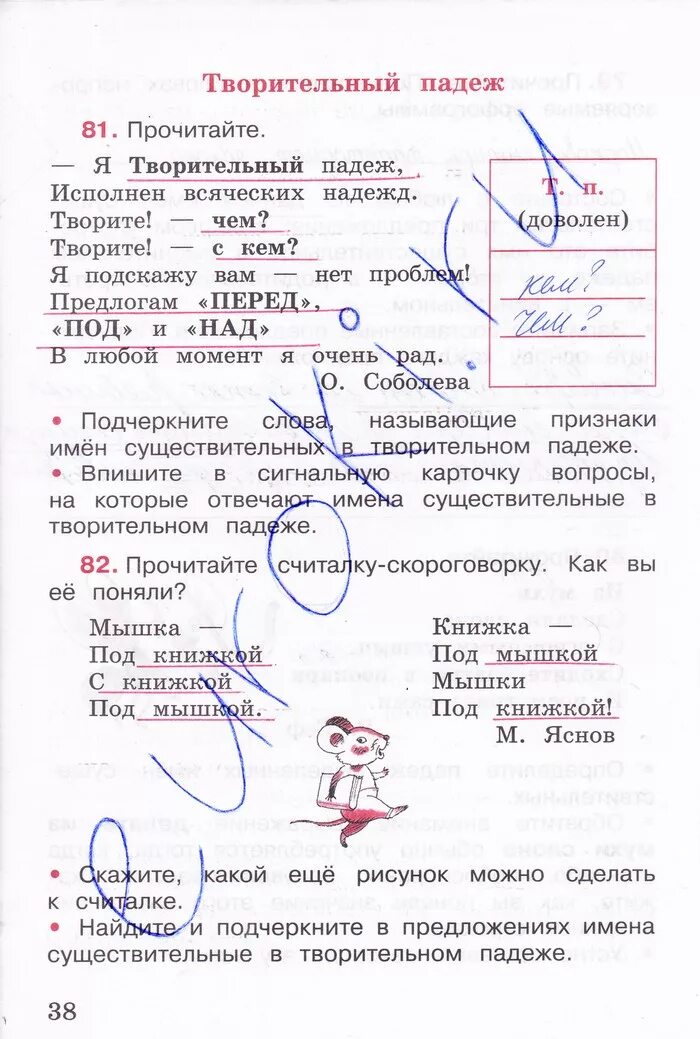 Творительный падеж
81. Прочитайте.
— Я Творительный падеж,
Исполнен всяческих надежд.
Творите! — чем?
Творите! — с кем?
Я подскажу вам — нет проблем!
Предлогам «ПЕРЕД»,
«ПОД» и «НАД»
В любой момент я очень рад.
О. Соболева
Т. п.
(доволен)
кем?
чем?
• Подчеркните слова, называющие признаки
имён существительных в творительном падеже.
• Впишите в сигнальную карточку вопросы,
на которые отвечают имена существительные в
творительном падеже.
82. Прочитайте считалку-скороговорку. Как вы
её поняли?
Мышка —
Под книжкой
С книжкой
Под мышкой.
Книжка —
Под мышкой
Мышки
Под книжкой!
М. Яснов
• Скажите, какой ещё рисунок можно сделать
к считалке.
• Найдите и подчеркните в предложениях имена
существительные в творительном падеже.
38